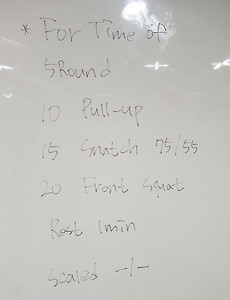 * For Time of
5Round
10 Pull-up
15 Snatch 75/55
20 Front squat
Rest 1min
Scaled -/-